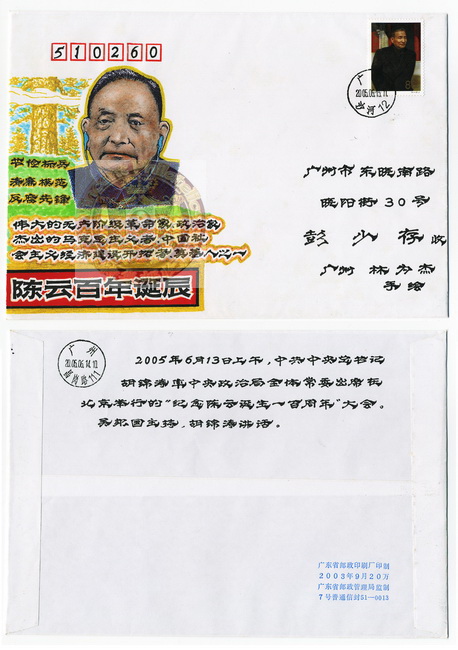 510260
广州
2005.06.13.11
12
党性标兵
清廉模范
反腐先锋
伟大的无产阶级革命家,政治家
杰出的马克思主义者,中国社
会主义经济建设开拓者,奠基人之一
陈云百年诞辰
广州市东晓南路
晓阳街30号
彭少存 收
广州 林为杰
手绘
广州
2005.06.14.10
111
2005年6月13日上午,中共中央总书记
胡锦涛率中央政治局全体常委出席在
北京举行的"纪念陈云诞生一百周年"大会。
吴邦国主持,胡锦涛讲话。
广东省邮政印刷厂印制
2003年9月20万
广东省邮政管理局监制
7号普通信封51—0013